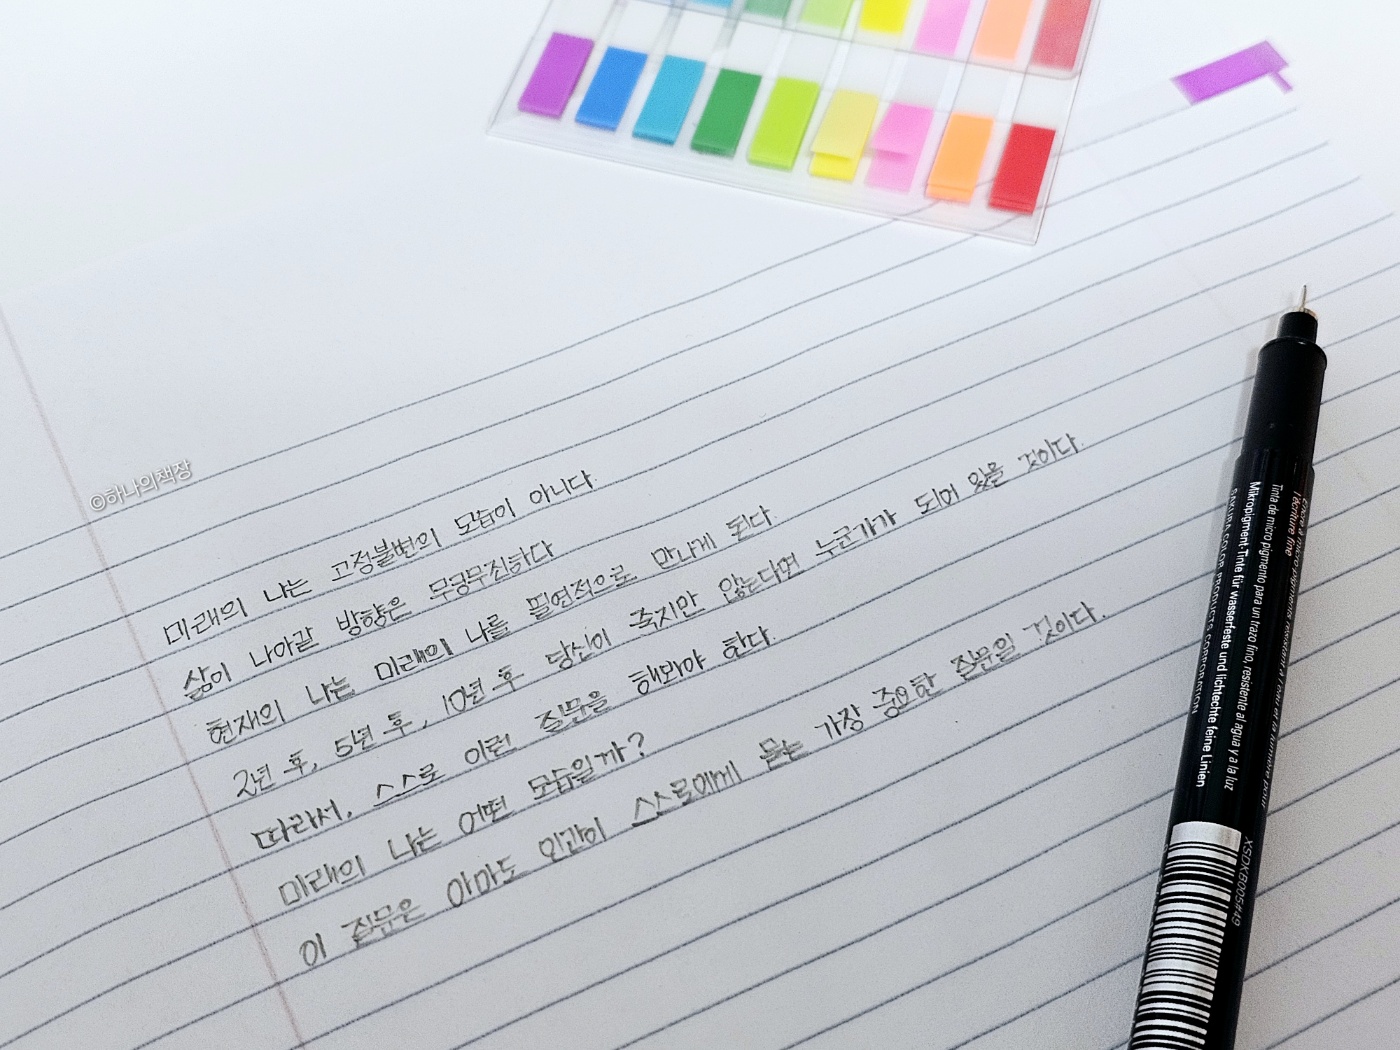 ©하나의책장
미래의 나는 고정불변의 모습이 아니다.
삶이 나아갈 방향은 무궁무진하다
현재의 나는 미래의 나를 필연적으로 만나게 된다.
2년 후, 5년 후, 10년 후 당신이 죽지만 않는다면 누군가가 되어 있을 것이다.
따라서, 스스로 이런 질문을 해봐야 한다.
미래의 나는 어떤 모습일까?
이 질문은 아마도 인간이 스스로에게 묻는 가장 중요한 질문일 것이다.
Encre à micro-pigments résistant à l'eau et à la lumière pour
l'écriture fine
Tinta de micro pigmento para un trazo fino, resistente al agua y a la luz
Mikropigment-Tinte für wasserfeste und lichtechte feine Linien
SAKURA COLOR PRODUCTS CORPORATION
XSDKB005#49